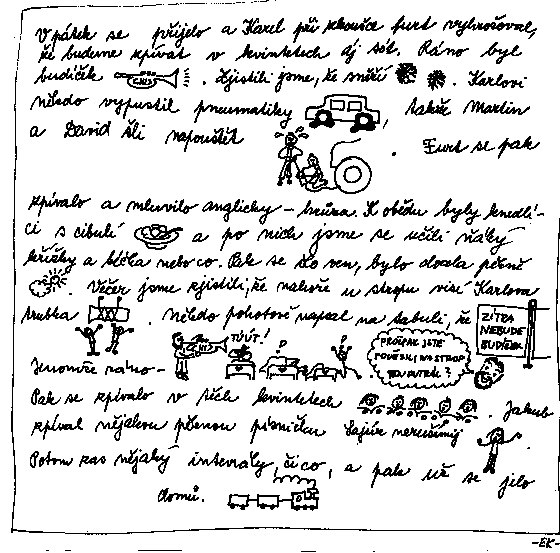 V pátek se přijelo a Karel při zkoušce furt vyhrožoval,
že budeme zpívat v kvintetech aj sól. Ráno byl
budíček . Zjistili jsme, že sněží . Karlovi
někdo vypustil pneumatiky , takže Martin
a David šli napouštět . Furt se pak
zpívalo a mluvilo anglicky – hrůza. K obědu byly knedlí-
ci s cibulí a po nich jsme se učili ňáký
křížky a béčka nebo co. Pak se šlo ven, bylo docela pěkně
. Večer jsme zjistili, že nahoře u stropu visí Karlova
trubka . Někdo pohotově napsal na tabuli, že
ZÍTRA
NEBUDE
BUDÍČEK
Jenomže ráno –
TÚÚT!
PROČPAK JSTE
POVĚSILI NA STROP
TOU TRUBKU?
Pak se zpívalo v těch kvintetech . Jakub
zpíval nějakou pěknou písničku
Potom zas nějaký intervaly, či co, a pak už se jelo
domů.
–EK–